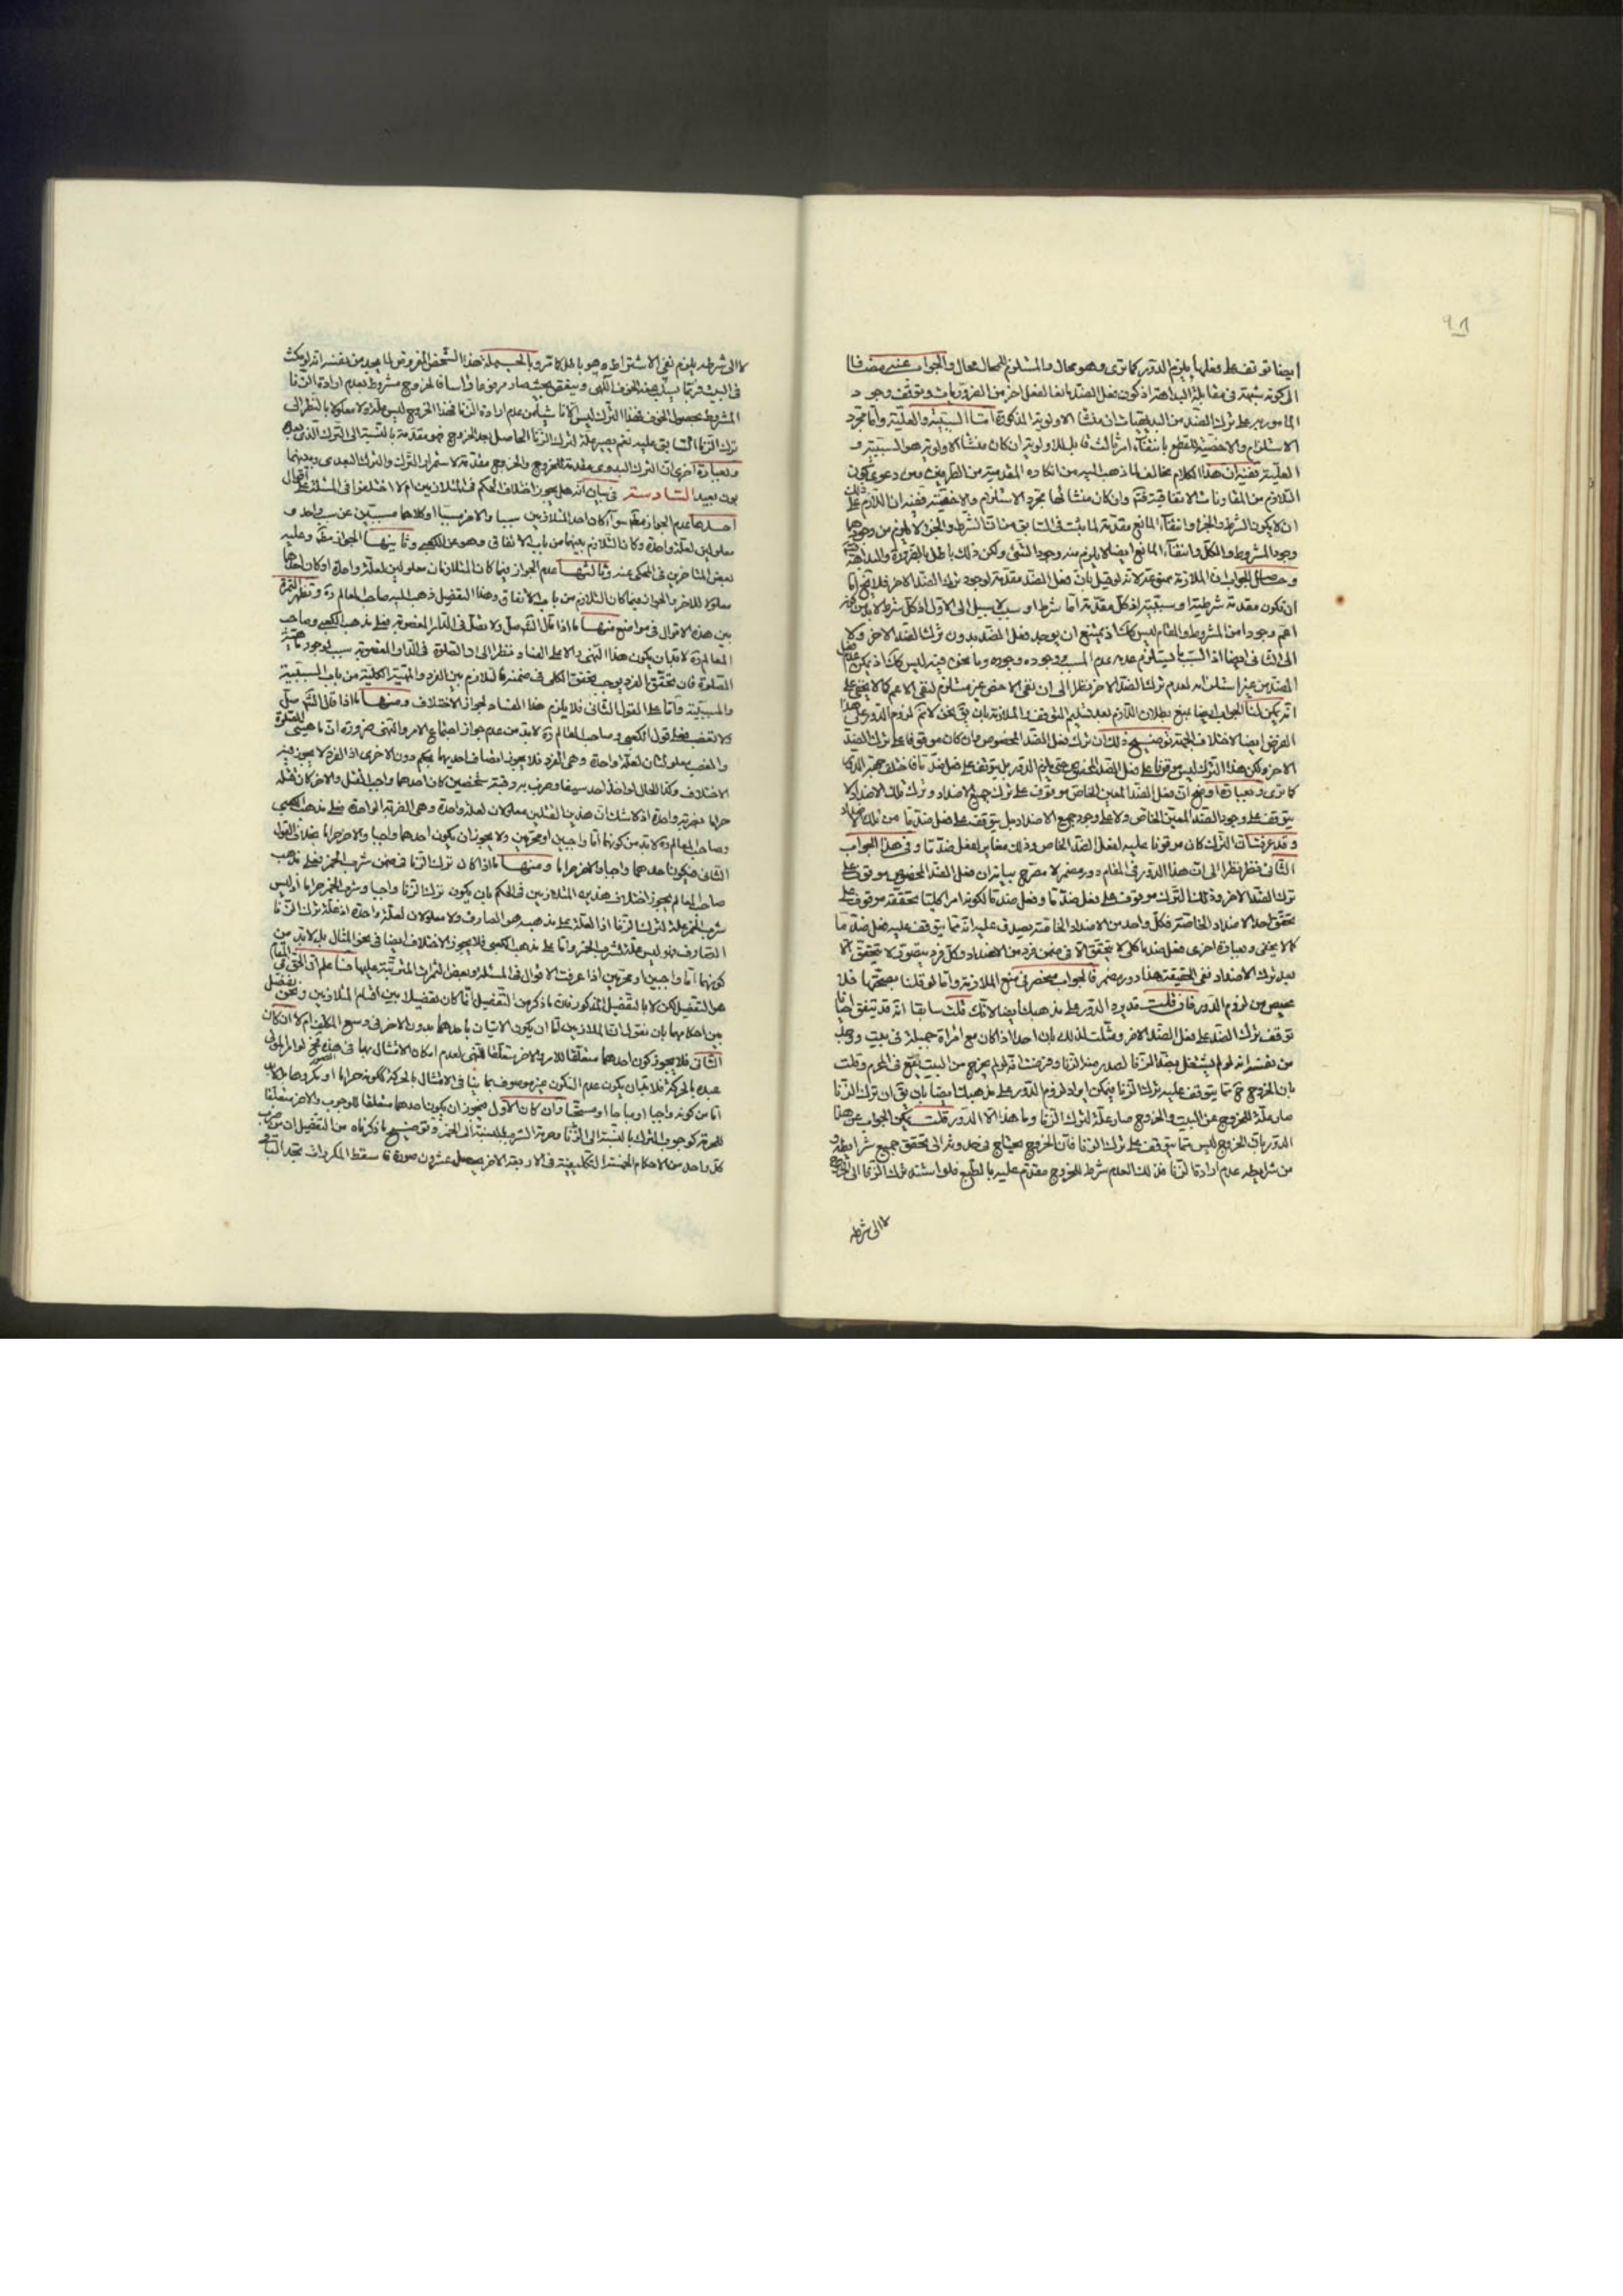 ٩١
ايضا توقف على فعلها يلزم الدور كما ترى وهو محال والمستلزم للمحال محال والجواب عنه مضافا
الى كونه شبهة فى مقابلة البداهة اذ كون فعل الضد مانعا لفعل اخر من الضروريات وتوقف وجود
المامور به على ترك الضد من البديهيات ان منشا الاولوية المذكورة اما السببية والعلية واما مجرد
الاستلزام والاخصية للقطع بانتفاء امر ثالث قابل للاولوية ان كان منشا الاولوية هو السببية و
العلية ففيه ان هذا الكلام مخالف لما ذهب اليه من انكاره المقدمية من الطرفين ومن دعوى كون
التلازم من المقارنات الاتفاقية فتم وان كان منشائها مجرد الاستلزام والاخصية ففيه ان اللازم على ذلك
ان لا يكون الشرط والجزء وانتفاء المانع مقدمة لما يثبت فى السابق من ان الشرط والجزء لا يلزم من وجودهما
وجود المشروط والكل وانتفاء المانع ايضا لا يلزم منه وجود الشئ ولكن ذلك باطل بالضرورة والبداهة
وحاصل الجواب ان الملازمة ممنوعة لانه لو قيل بان فعل الضد مقدمة لوجود ترك الضد الاخر فلا يخ اما
ان تكون مقدمة شرطية او سببية اذ كل مقدمة اما شرط او سبب لا سبيل الى الاول اذ كل شرط لا بد من كونه
اعم وجودا من المشروط والمقام ليس كك اذ يمتنع ان يوجد فعل الضد بدون ترك الضد الاخر ولا
الى الثانى ايضا اذ السبب ما يستلزم عدمه عدم المسبب ووجوده وجوده وما نحن فيه ليس كك اذ يمكن عدم فعل
الضد من غير استلزامه لعدم ترك الضد الاخر نظرا الى ان نفى الاخص غير مستلزم لنفى الاعم كما لا يخفى على
انه يمكن لنا الجواب ايضا بمنع بطلان اللازم بعد تسليم التوقف والملازمة بان يق نحن لا نم لزوم الدور على هذا
الفرض ايضا لاختلاف الجهة توضيح ذلك ان ترك فعل الضد المخصوص وان كان موقوفا على ترك الضد
الاخر ولكن هذا الترك ليس موقوفا على فعل الضد المخصوص حتى يلزم الدور بل يتوقف على فعل ضد ما فاختلف جهة الدور
كما ترى وبعبارة اوضح ان فعل الضد المعين الخاص موقوف على ترك جميع الاضداد وترك تلك الاضداد لا
يتوقف على وجود الضد المعين الخاص ولا على وجود جميع الاضداد بل يتوقف على فعل ضد ما من تلك الاضداد
وقد عرفت ان الترك كان موقوفا عليه لفعل الضد الخاص وذلك مغاير لفعل ضد ما وفى هذا الجواب
الثانى نظر نظرا الى ان هذا الدور فى المقام دور مضمر لا مصرح بيانه ان فعل الضد المخصوص موقوف على
ترك الضد الاخر وذلك الترك موقوف على فعل ضد ما وفعل ضد ما لكونه امرا كليا تحققه موقوف على
تحقق احد الاضداد الخاصة فكل واحد من الاضداد الخاصة يصدق عليه انه مما يتوقف عليه فعل ضد ما
كما لا يخفى وبعبارة اخرى فعل ضد ما كلى لا يتحقق الا فى ضمن فرد من الاضداد وكل فرد يتصور لا يتحقق الا
بعد ترك الاضداد ففى الحقيقة هنا دور مضمر فالجواب منحصر فى منع الملازمة واما لو قلنا بصحتها فلا
محيص من لزوم الدور فان قلت قد يرد الدور على مذهبك ايضا لانك قلت سابقا انه قد يتفق احيانا
توقف ترك الضد على فعل الضد الاخر ومثلت لذلك بان احدا اذا كان مع امراة جميلة فى بيت ووجد
من نفسه انه لو لم يشتغل بضد الزنا لصدر منه الزنا وفرضنا انه لو لم يخرج من البيت يقع فى المحرم وقلت
بان الخروج ح مما يتوقف عليه ترك الزنا فيمكن ايراد لزوم الدور على مذهبك ايضا بان يق ان ترك الزنا
صار علة للخروج عن البيت والخروج صار علة لترك الزنا وما هذا الا الدور قلت يمكن الجواب عن هذا
الدور بان الخروج ليس مما يتوقف على ترك الزنا فان الخروج يحتاج فى حد وثره الى تحقق جميع شرايطه و
من شرايطه عدم ارادة الزنا فذلك العدم شرط للخروج مقدم عليه بالطبع فلو استند ترك الزنا الى الخروج
لا الى شرطه
لا الى شرطه يلزم نفى الاشتراط وهو باطل كما تر وبالجملة فهذا الشخص المفروض لما يجد من نفسه انه لو مكث
فى البيت فربما يسلب عنه الخوف الالهى ويتفق بحيث صار مرخوعا فاسقا فالخروج مشروط بعدم ارادة الزنا
المشروط بحصول الخوف فهذا الترك ليس الا ناشيا من عدم ارادة الزنا فهذا الخروج ليس علة ولا معلولا بالنظر الى
ترك الزنا السابق عليه نعم يصير علة لترك الزنا الحاصل بعد الخروج فهو مقدمة بالنسبة الى الترك الذى بعده
وبعبارة اخرى ان الترك البدوى مقدمة للخروج والخروج مقدمة لاستمرار الترك والترك البعدى وبينهما
بون بعيد السادسة فى بيان انه هل يجوز اختلاف الحكم فى المتلازمين ام لا اختلفوا فى المسئلة على اقوال
احدها عدم الجواز مطلقا سواء كان احد المتلازمين سببا والاخر مسببا او كلاهما مسببين عن سبب واحد و
معلولين لعلة واحدة وكان التلازم بينهما من باب الاتفاق وهو عن الكعبى وثانيها الجواز مطلقا وعليه
بعض المتاخرين فى المحكى عنه وثالثها عدم الجواز فيما كان المتلازمان معلولين لعلة واحدة او كان احدهما
معلولا للاخر والجواز فيما كان التلازم من باب الاتفاق وهذا التفصيل ذهب اليه صاحب المعالم ره وتظهر الثمرة
بين هذه الاقوال فى مواضع منها ما اذا قال الشارع صل ولا تصل فى الدار المغصوبة فعلى مذهب الكعبى وصاحب
المعالم ره لا بد ان يكون هذا النهى دالا على الفساد نظرا الى ان الصلوة فى الدار المغصوبة سبب لوجود مهية
الصلوة فان تحقق الفرد يوجب تحقق الكلى فى ضمنه فالتلازم بين الفرد والمهية الكلية من باب السببية
والمسببية واما على القول الثانى فلا يلزم هذا الفساد لجواز الاختلاف ومنها ما اذا قال الشارع صل
ولا تغصب فعلى قول الكعبى وصاحب المعالم ره لا بد من عدم جواز اجتماع الامر والنهى ضرورة ان ماهيتى الصلوة
والغصب معلولتان لعلة واحدة وهى الفرد فلا يجوز اتصاف احديهما بحكم دون الاخرى اذ الفرد لا يجوز فيه
الاختلاف وكذا الحال لو اخذ احد سيفا وضرب به رقبة شخصين كان احدهما واجب القتل والاخر كان قتله
حراما بضربة واحدة اذ لا شك ان هذين القتلين معلولان لعلة واحدة وهى الضربة الواحدة فعلى مذهب الكعبى
وصاحب المعالم ره لا بد من كونهما اما واجبين او محرمين ولا يجوز ان يكون احدهما واجبا والاخر حراما بخلاف القول
الثانى فيكون احدهما واجبا والاخر حراما ومنها ما اذا كان ترك الزنا فى ضمن شرب الخمر فعلى مذهب
صاحب المعالم يجوز اختلاف هذين المتلازمين فى الحكم بان يكون ترك الزنا واجبا وشرب الخمر حراما اذ ليس
شرب الخمر علة لترك الزنا اذ العلة على مذهبه هو الصارف ولا معلولان لعلة واحدة اذ علة ترك الزنا
الصارف وهو ليس علة لشرب الخمر واما على مذهب الكعبى فلا يجوز الاختلاف ايضا فى نحو المثال بل لا بد من
كونهما اما واجبين او محرمين اذا عرفت الاقوال فى المسئلة وبعض الثمرات المترتبة عليها فاعلم ان الحق فى المقام
هو التفصيل لكن لا بالتفصيل المذكور فان ما ذكر من التفصيل انما كان تفصيلا بين اقسام المتلازمين ونحن نفصل
بين احكامهما بان نقول ان المتلازمين اما ان يكون الاتيان باحدهما بدون الاخر فى وسع المكلف ام لا ان كان
الثانى فلا يجوز كون احدهما متعلقا للامر والاخر متعلقا للنهى لعدم امكان الامتثال بهما فى هذه الصورة فح لو امر المولى
عبده بالحركة فلا بد ان يكون عدم السكون غير موصوف بما ينافى الامتثال بالحركة ككونه حراما او مكروها بل لا بد
اما من كونه واجبا او مباحا او مستحبا وان كان الاول فيجوز ان يكون احدهما متعلقا للوجوب والاخر متعلقا
للحرمة كوجوب الترك بالنسبة الى الزنا وحرمة الشرب بالنسبة الى الخمر وتوضيح ما ذكرناه من التفصيل ان من ضرب
كل واحد من الاحكام الخمسة التكليفية فى الاربعة الاخر يحصل عشرون صورة فاسقط المكررات تجد الباقى